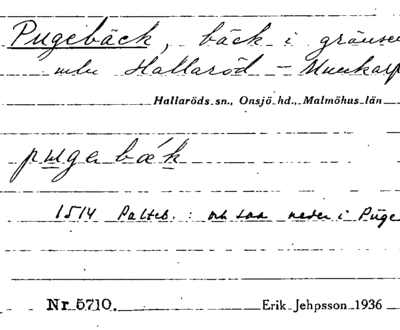 Pugebäck, bäck i gränsen
mln Hallaröd – Munkarp
Hallaröds sn., Onsjö hd., Malmöhus län
pugebäk
1514 Palteb. : och saa neder i Puge
Nr 5710. Erik Jehpsson 1936